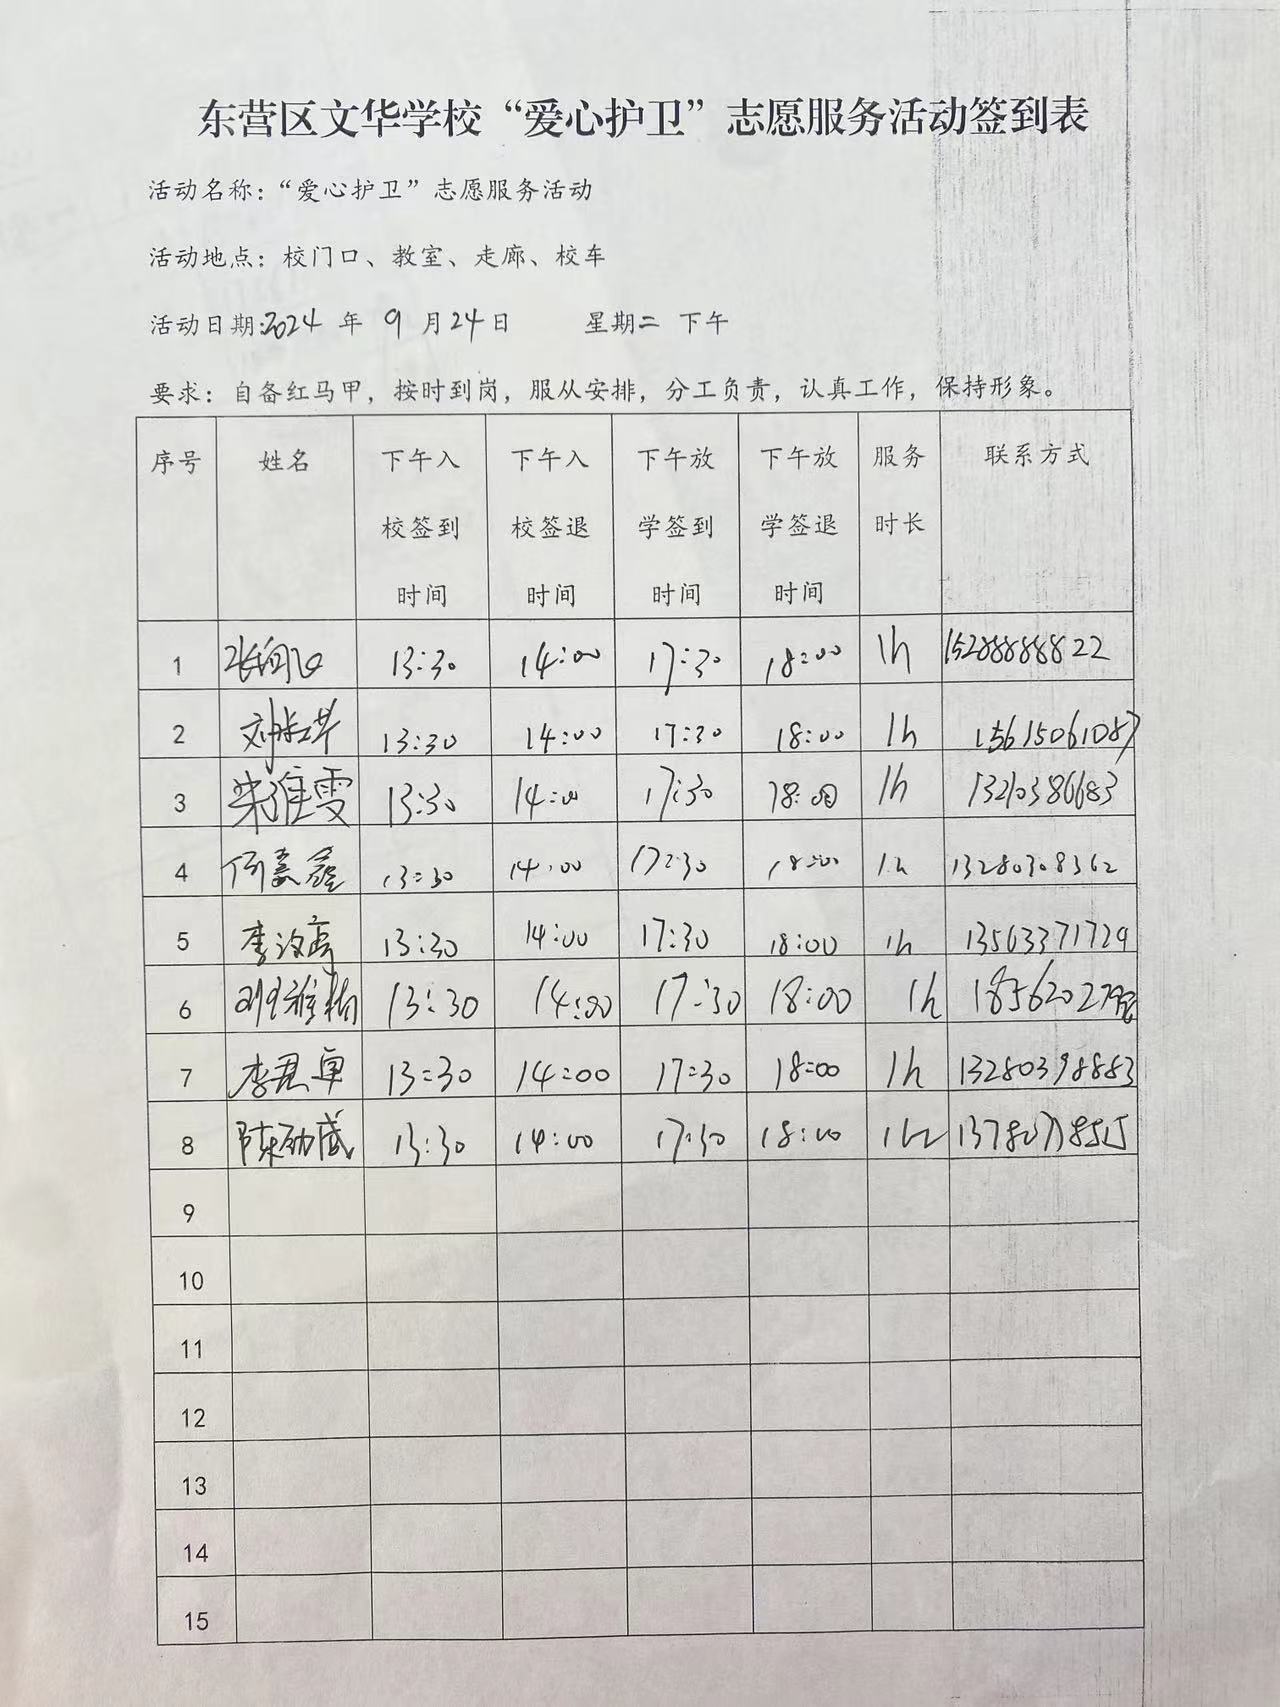 东营区文华学校“爱心护卫”志愿服务活动签到表
活动名称：“爱心护卫”志愿服务活动
活动地点：校门口、教室、走廊、校车
活动日期：2024 年 9 月24日 星期二 下午
要求：自备红马甲，按时到岗，服从安排，分工负责，认真工作，保持形象。
序号 姓名 下午入校签到时间 下午入校签退时间 下午放学签到时间 下午放学签退时间 服务时长 联系方式
1 13:30 14:00 17:30 18:00 1h 15288888822
2 13:30 14:00 17:30 18:00 1h 15615061087
3 13:30 14:00 17:30 18:00 1h 13210386683
4 何嘉鑫 13:30 14:00 17:30 18:00 1h 13280308362
5 李汶高 13:30 14:00 17:30 18:00 1h 13563371729
6 13:30 14:00 17:30 18:00 1h
7 李君卓 13:30 14:00 17:30 18:00 1h 13280398883
8 13:30 14:00 17:30 18:00 1h
9
10
11
12
13
14
15